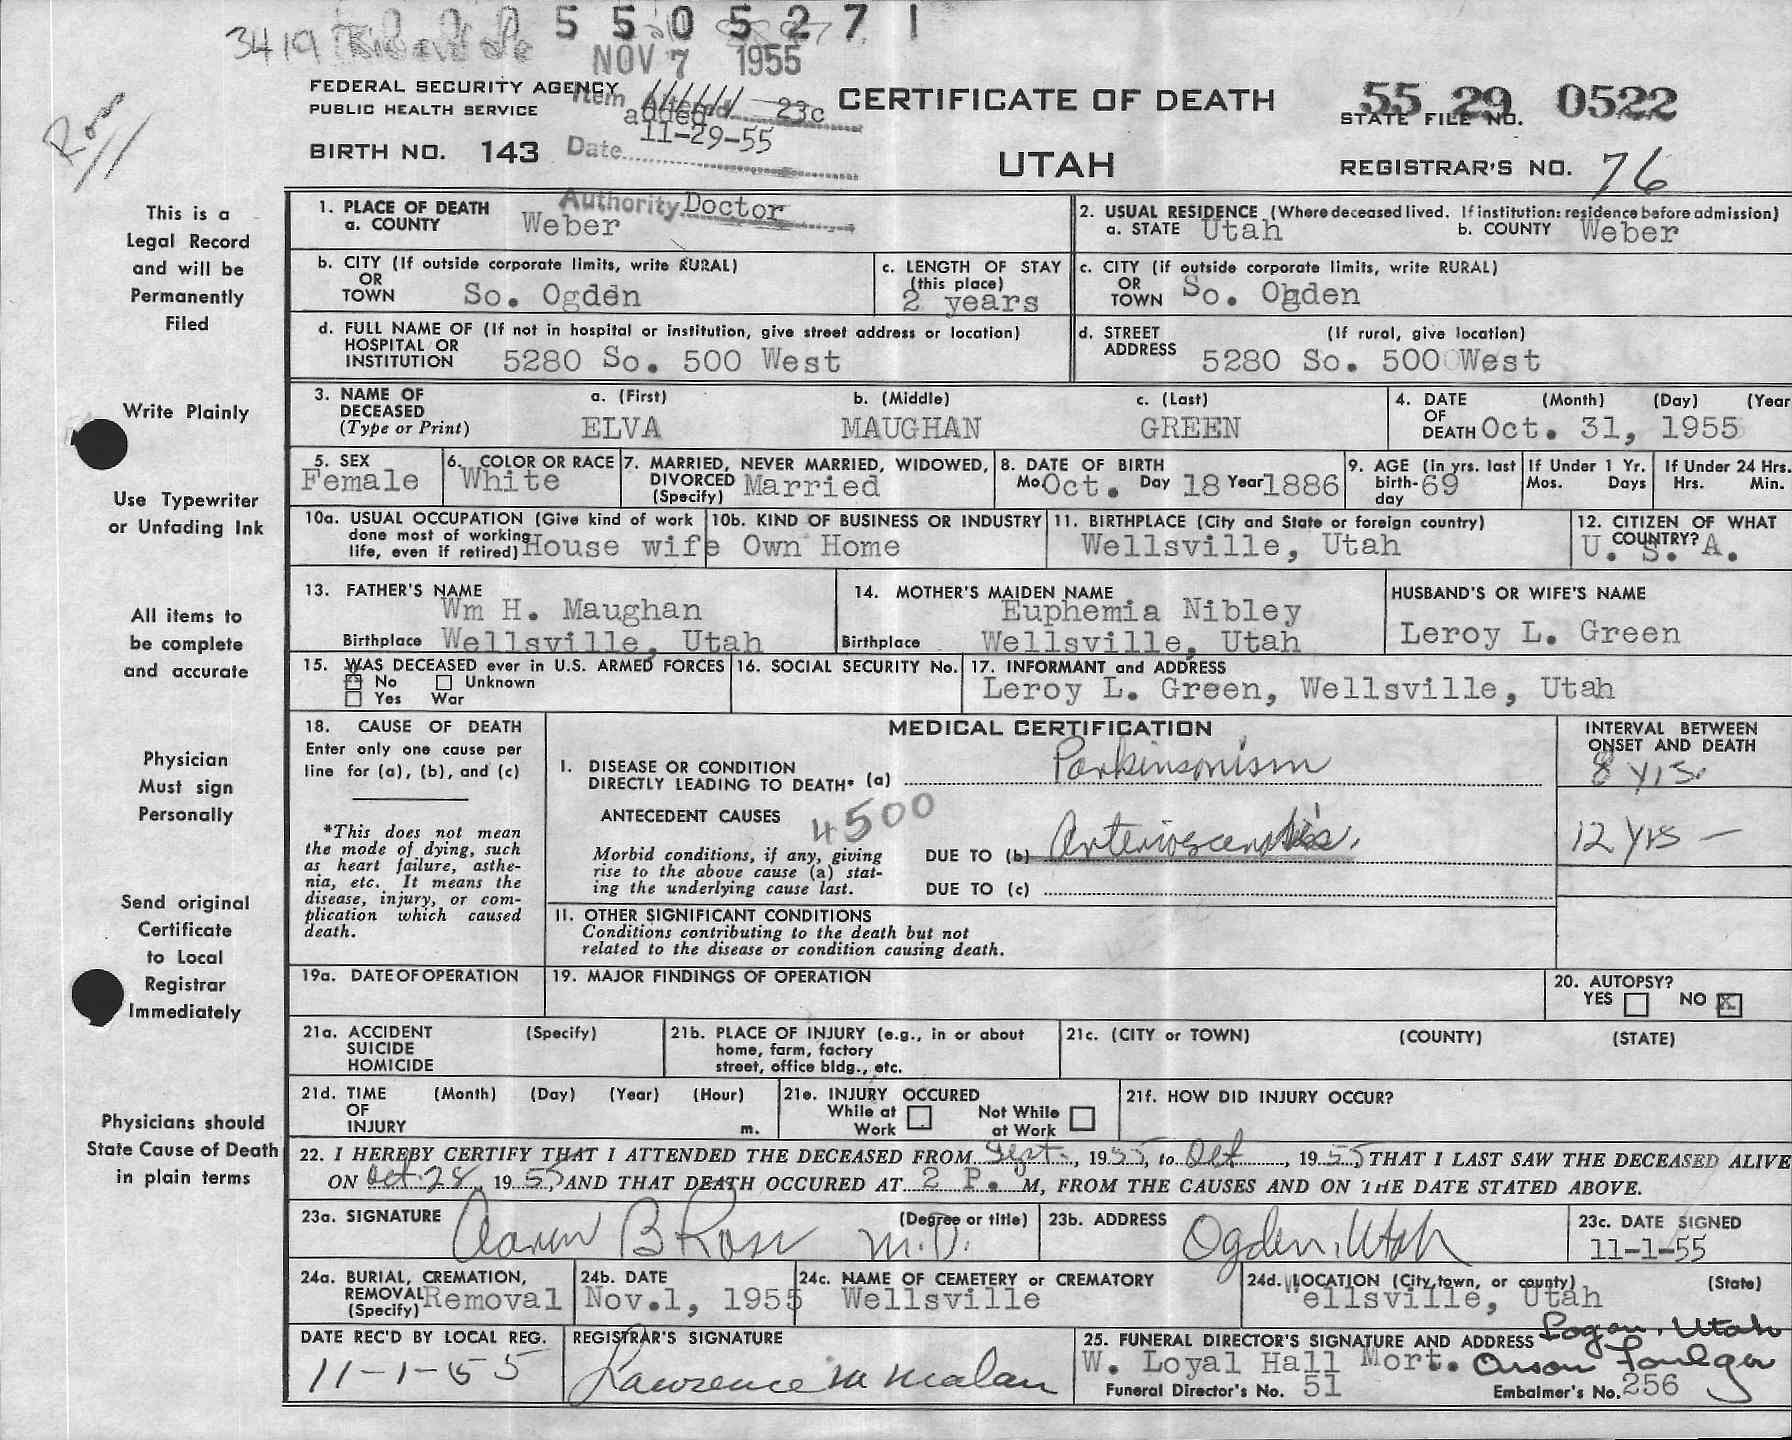 3419
5505271
NOV 7 1955
FEDERAL SECURITY AGENCY
PUBLIC HEALTH SERVICE
Item Altered 23c
added
Date 11-29-55
Authority Doctor
CERTIFICATE OF DEATH
UTAH
55 29 0522
STATE FILE NO.
BIRTH NO. 143
REGISTRAR'S NO. 76
This is a
Legal Record
and will be
Permanently
Filed
Write Plainly
Use Typewriter
or Unfading Ink
All items to
be complete
and accurate
Physician
Must sign
Personally
Send original
Certificate
to Local
Registrar
Immediately
Physicians should
State Cause of Death
in plain terms
1. PLACE OF DEATH
a. COUNTY Weber
2. USUAL RESIDENCE (Where deceased lived. If institution: residence before admission)
a. STATE Utah b. COUNTY Weber
b. CITY (If outside corporate limits, write RURAL)
OR
TOWN So. Ogden
c. LENGTH OF STAY
(this place)
2 years
c. CITY (if outside corporate limits, write RURAL)
OR
TOWN So. Ogden
d. FULL NAME OF (If not in hospital or institution, give street address or location)
HOSPITAL OR
INSTITUTION 5280 So. 500 West
d. STREET (If rural, give location)
ADDRESS 5280 So. 500 West
3. NAME OF a. (First) b. (Middle) c. (Last)
DECEASED
(Type or Print) ELVA MAUGHAN GREEN
4. DATE (Month) (Day) (Year
OF
DEATH Oct. 31, 1955
5. SEX
Female
6. COLOR OR RACE
White
7. MARRIED, NEVER MARRIED, WIDOWED,
DIVORCED
(Specify) Married
8. DATE OF BIRTH
Mo Oct. Day 18 Year 1886
9. AGE (In yrs. last
birth-
day 69
If Under 1 Yr.
Mos. Days
If Under 24 Hrs.
Hrs. Min.
10a. USUAL OCCUPATION (Give kind of work
done most of working
life, even if retired) House wife
10b. KIND OF BUSINESS OR INDUSTRY
Own Home
11. BIRTHPLACE (City and State or foreign country)
Wellsville, Utah
12. CITIZEN OF WHAT
COUNTRY?
U. S. A.
13. FATHER'S NAME
Wm H. Maughan
Birthplace Wellsville, Utah
14. MOTHER'S MAIDEN NAME
Euphemia Nibley
Birthplace Wellsville, Utah
HUSBAND'S OR WIFE'S NAME
Leroy L. Green
15. WAS DECEASED ever in U.S. ARMED FORCES
No Unknown
Yes War
16. SOCIAL SECURITY No.
17. INFORMANT and ADDRESS
Leroy L. Green, Wellsville, Utah
18. CAUSE OF DEATH
Enter only one cause per
line for (a), (b), and (c)
*This does not mean
the mode of dying, such
as heart failure, asthe-
nia, etc. It means the
disease, injury, or com-
plication which caused
death.
MEDICAL CERTIFICATION
I. DISEASE OR CONDITION
DIRECTLY LEADING TO DEATH* (a) Parkinsonism
ANTECEDENT CAUSES 4500
Morbid conditions, if any, giving
rise to the above cause (a) stat-
ing the underlying cause last.
DUE TO (b)
DUE TO (c)
INTERVAL BETWEEN
ONSET AND DEATH
8 yrs.
12 yrs —
II. OTHER SIGNIFICANT CONDITIONS
Conditions contributing to the death but not
related to the disease or condition causing death.
19a. DATE OF OPERATION
19. MAJOR FINDINGS OF OPERATION
20. AUTOPSY?
YES NO X
21a. ACCIDENT (Specify)
SUICIDE
HOMICIDE
21b. PLACE OF INJURY (e.g., in or about
home, farm, factory
street, office bldg., etc.
21c. (CITY or TOWN) (COUNTY) (STATE)
21d. TIME (Month) (Day) (Year) (Hour)
OF
INJURY m.
21e. INJURY OCCURED
While at Work Not While at Work
21f. HOW DID INJURY OCCUR?
22. I HEREBY CERTIFY THAT I ATTENDED THE DECEASED FROM Sept., 1955, to Oct, 1955, THAT I LAST SAW THE DECEASED ALIVE
ON Oct. 28, 1955, AND THAT DEATH OCCURED AT 2 P. M, FROM THE CAUSES AND ON THE DATE STATED ABOVE.
23a. SIGNATURE (Degree or title)
Aaron B Ross M.D.
23b. ADDRESS
Ogden, Utah
23c. DATE SIGNED
11-1-55
24a. BURIAL, CREMATION,
REMOVAL
(Specify) Removal
24b. DATE
Nov.1, 1955
24c. NAME OF CEMETERY or CREMATORY
Wellsville
24d. LOCATION (City, town, or county) (State)
Wellsville, Utah
DATE REC'D BY LOCAL REG.
11-1-55
REGISTRAR'S SIGNATURE
Lawrence M Malan
25. FUNERAL DIRECTOR'S SIGNATURE AND ADDRESS Logan, Utah
W. Loyal Hall Mort. Orson Foulger
Funeral Director's No. 51 Embalmer's No. 256